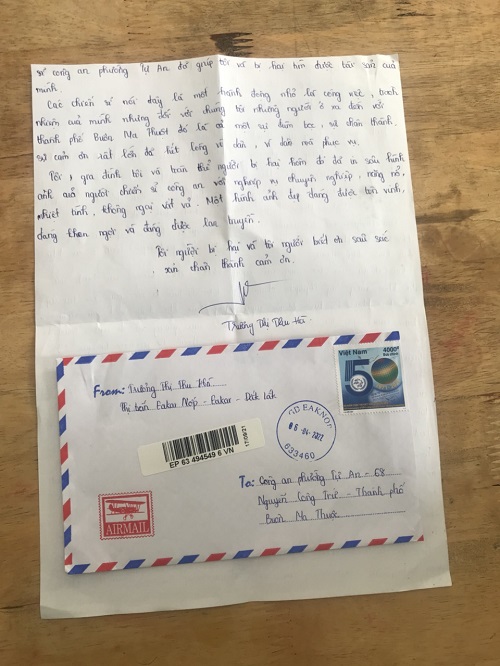 sĩ công an phường Tự An đã giúp tôi và bị hại tìm được tài sản của
mình.
Các chiến sĩ nói đây là một hành động nhỏ là công việc, trách
nhiệm của mình nhưng đối với chúng tôi những người ở xa đến với
thành phố Buôn Ma Thuột đó là cả một sự đón tiếp, sự chân thành.
sự cảm ơn rất lớn đã hết lòng vì dân, vì dân mà phục vụ.
Tôi, gia đình tôi và toàn thể người bị hại hôm đó đã in sâu hình
ảnh của người chiến sĩ công an với nghiệp vụ chuyên nghiệp, năng nổ,
nhiệt tình, không ngại vất vả. Một hình ảnh đẹp đáng được tôn vinh,
đáng khen ngợi và đáng được lan truyền.
Tôi người bị hại và tôi người biết ơn sâu sắc
xin chân thành cảm ơn.
Trương Thị Thu Hà
Việt Nam 4000đ
Bưu chính
50
From: Trương Thị Thu Hà
Thị trấn Eakar Nốp - Eakar - Đăk Lăk
GD EAKNOP
06-04-2022
633460
EP 63 494549 6 VN
17/09/21
To: Công an phường Tự An - 68
Nguyễn Công Trứ - Thành phố
Buôn Ma Thuột
AIRMAIL